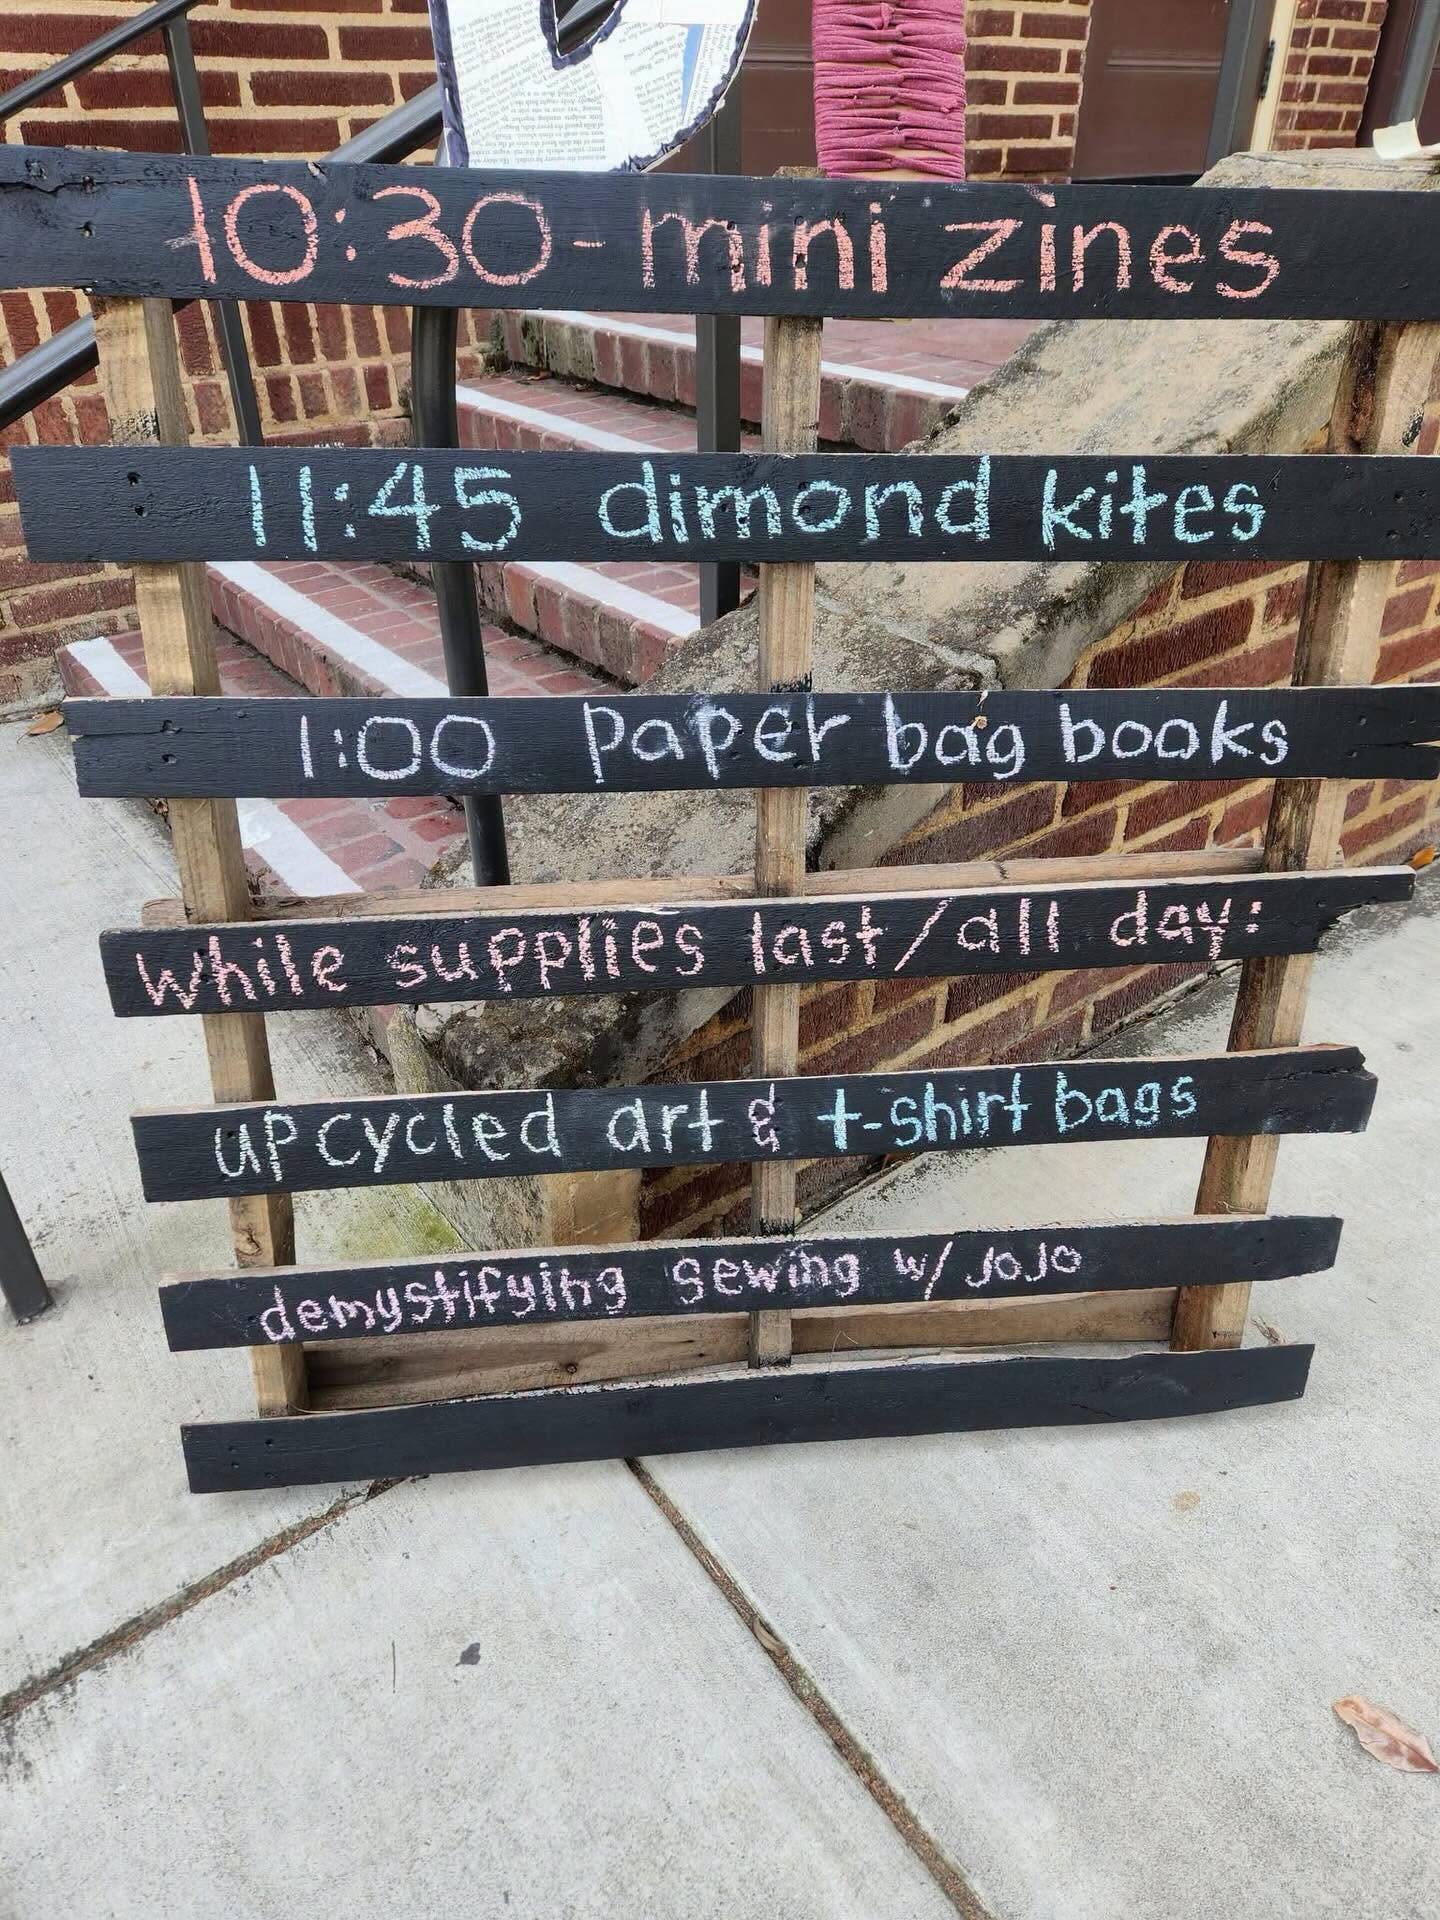 10:30 - mini zines
11:45 dimond kites
1:00 paper bag books
while supplies last/all day:
upcycled art & t-shirt bags
demystifying sewing w/ JoJo